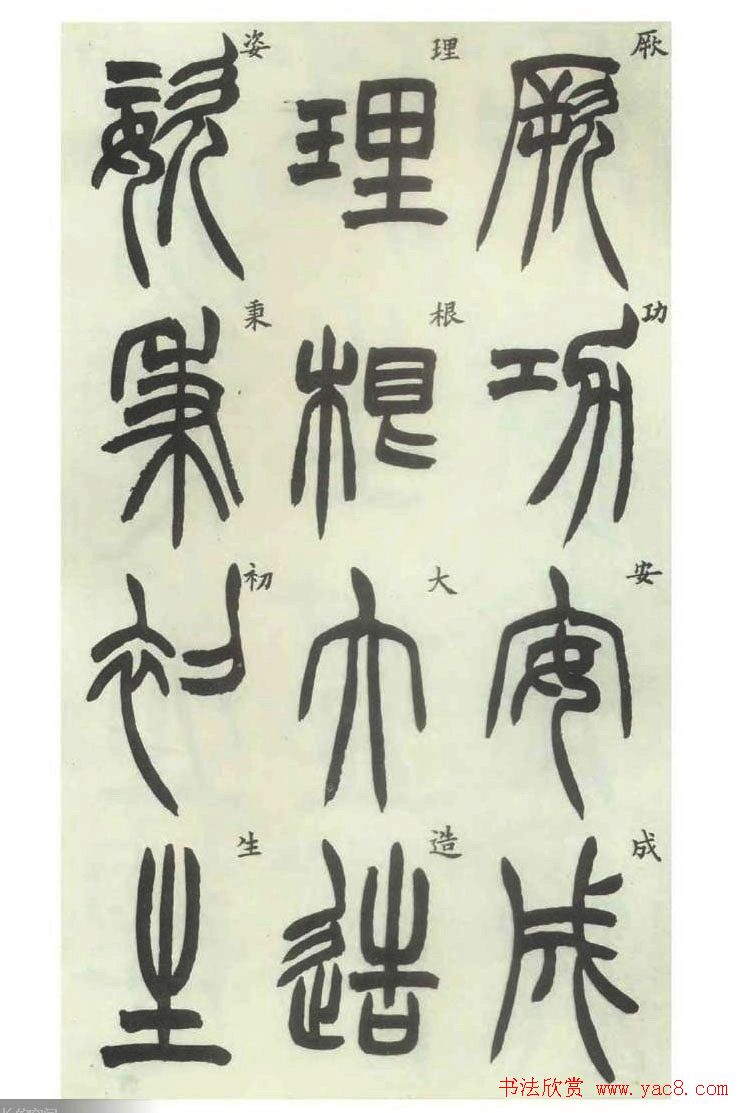 厥功安成
理根大造
姿秉初生
书法欣赏 www.yac8.com